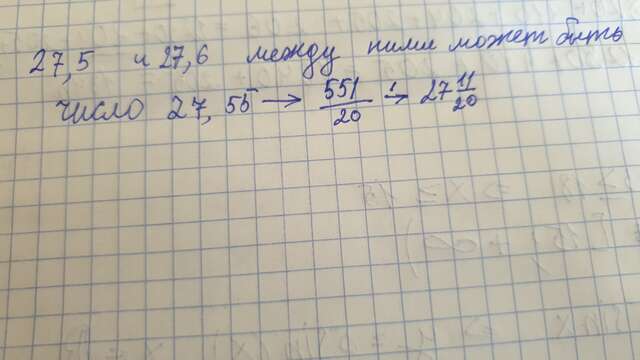 27,5 и 27,6 между ними может быть
число 27,55 → 551/20 → 27 11/20